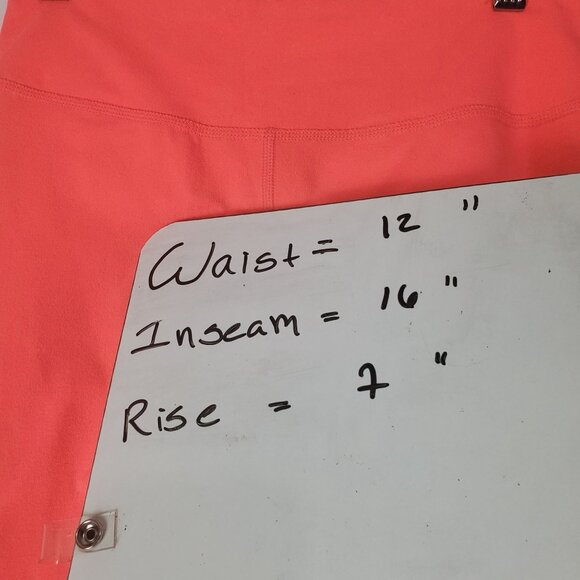 Waist = 12 "
Inseam = 16 "
Rise = 7 "